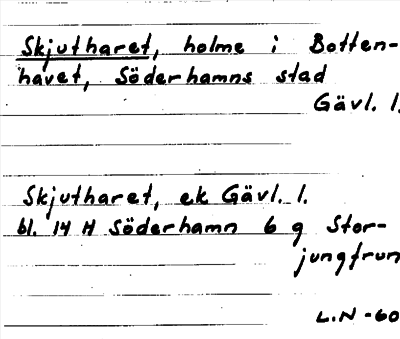 Skjutharet, holme i Botten-
havet, Söderhamns stad
Gävl. l.
Skjutharet, ek Gävl. l.
bl. 14 H Söderhamn 6 g Stor-
jungfrun
L.N -60